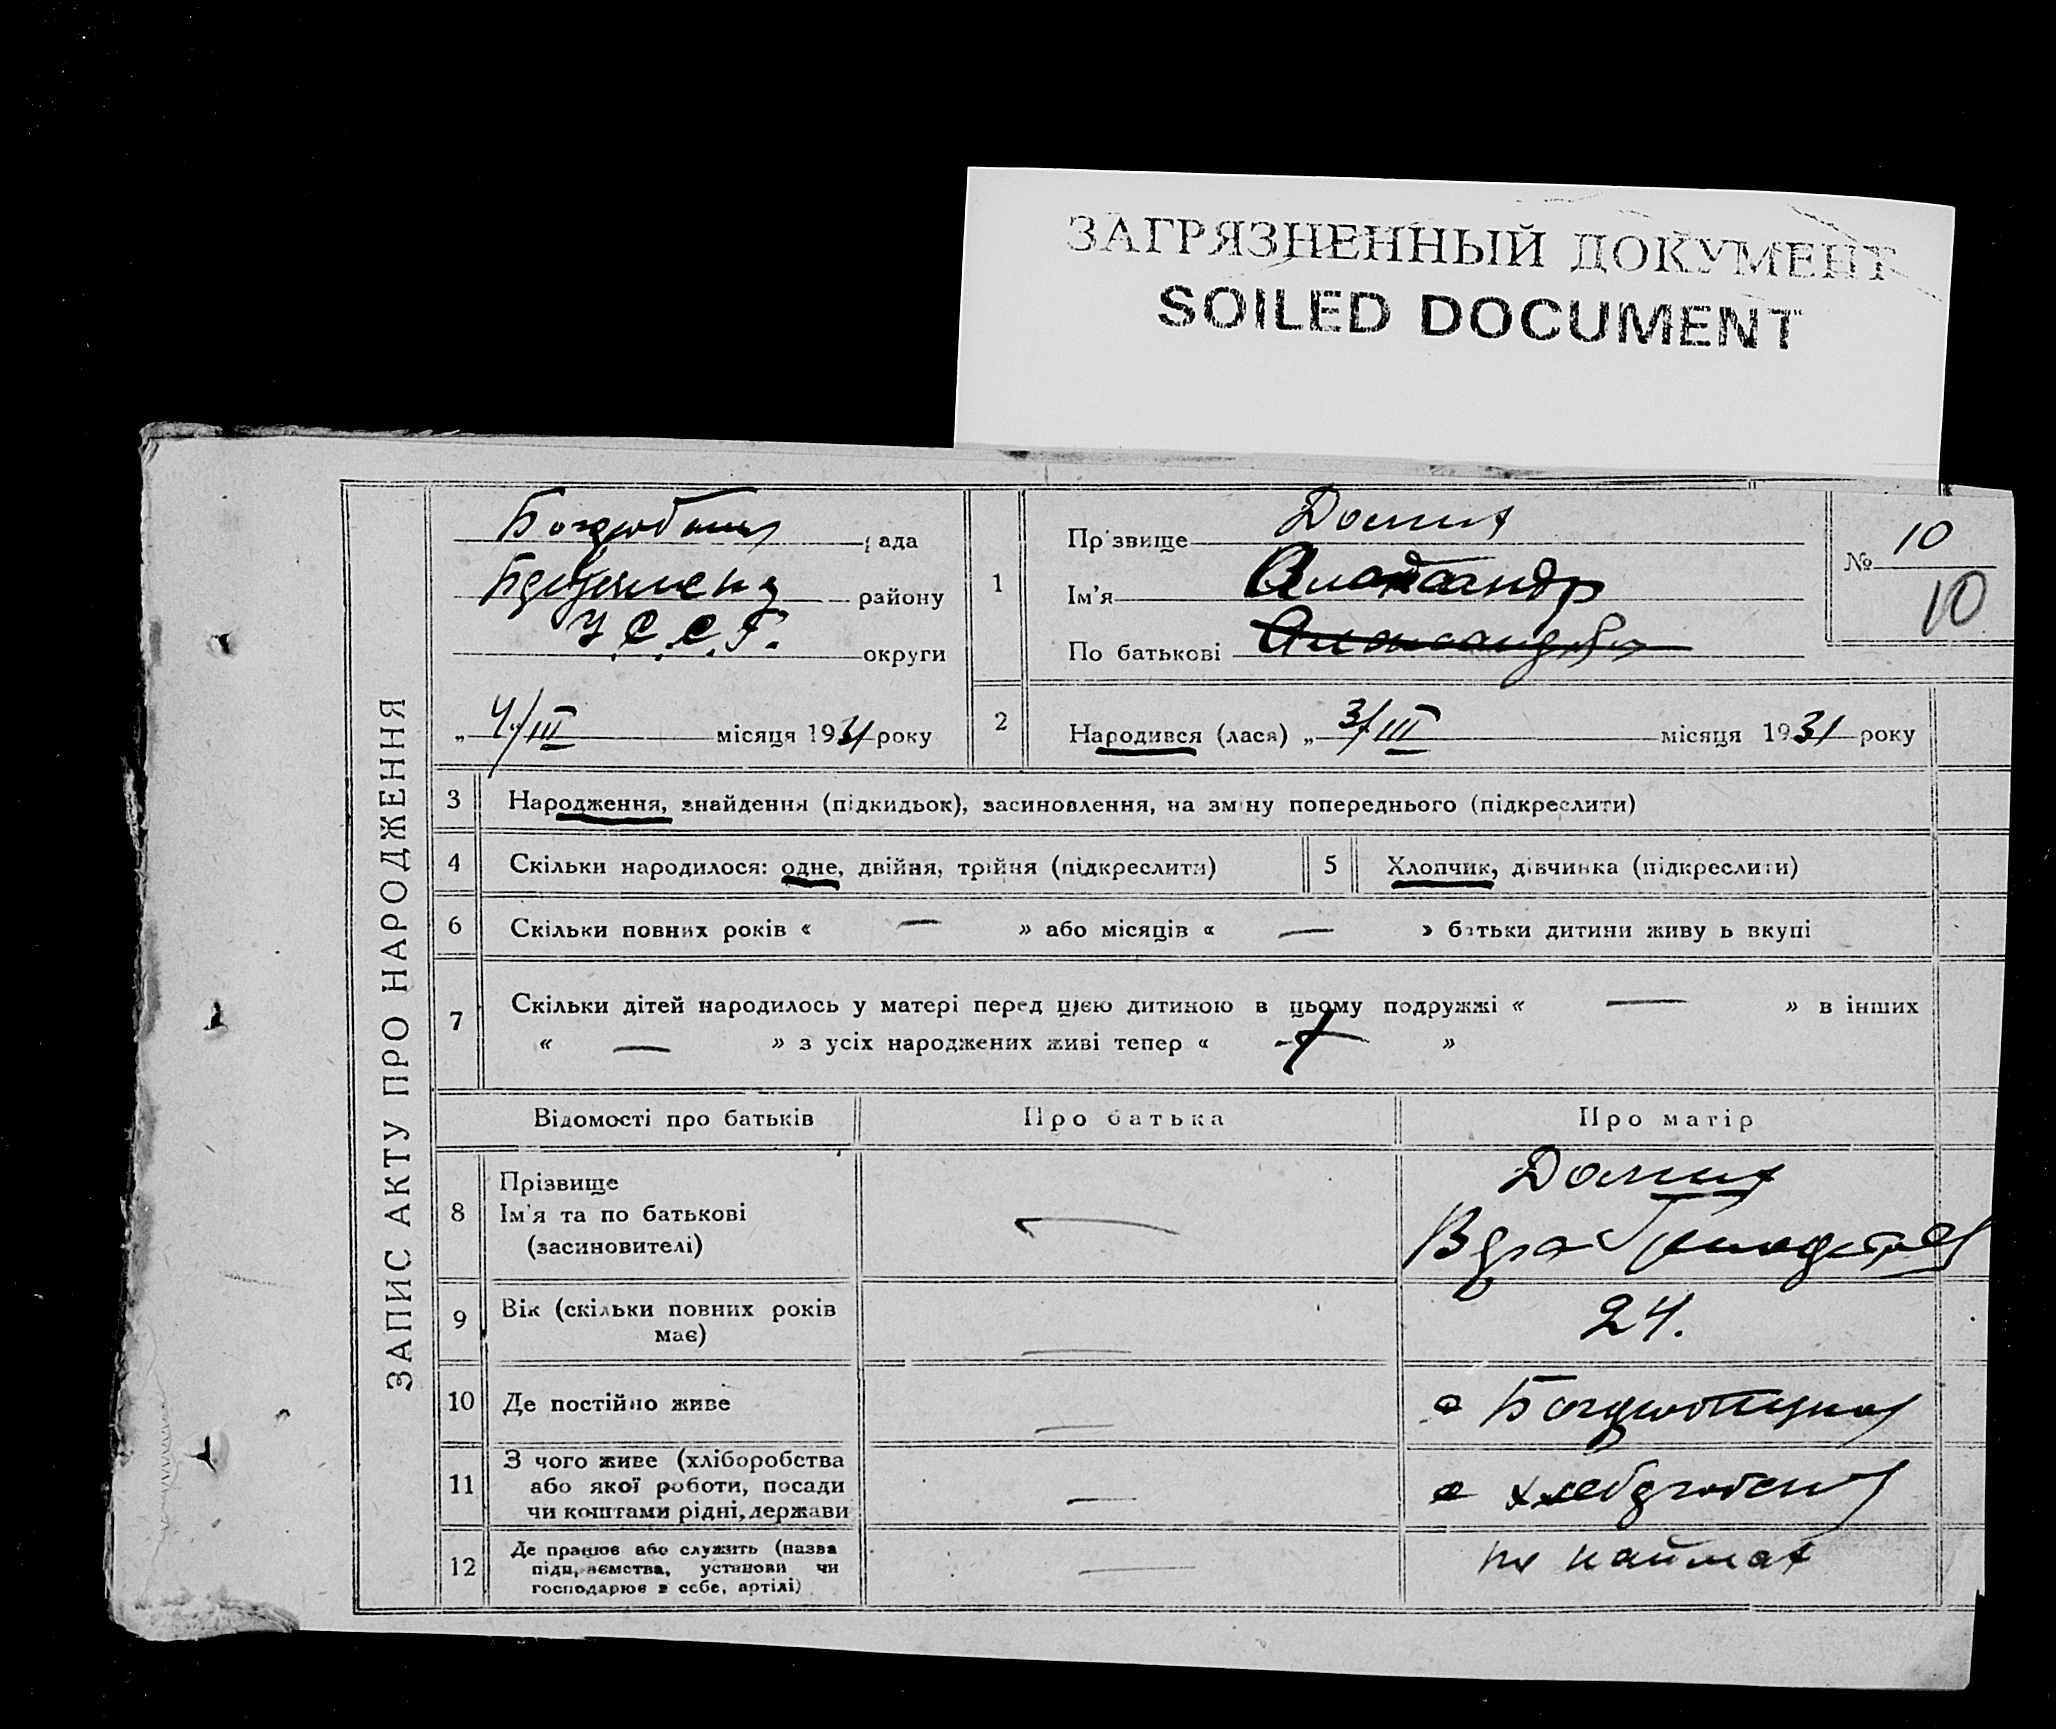 ЗАГРЯЗНЕННЫЙ ДОКУМЕНТ
SOILED DOCUMENT
ЗАПИС АКТУ ПРО НАРОДЖЕННЯ
рада
району
У.С.С.Р. округи
„ 4/III місяця 1931 року
1
Прізвище
Ім'я Александр
По батькові
№ 10
10
2 Народився (лася) „ 3/III місяця 1931 року
3 Народження, знайдення (підкидьок), засиновлення, на зміну попереднього (підкреслити)
4 Скільки народилося: одне, двійня, трійня (підкреслити)
5 Хлопчик, дівчинка (підкреслити)
6 Скільки повних років « — » або місяців « — » батьки дитини живуть вкупі
7 Скільки дітей народилось у матері перед цією дитиною в цьому подружжі « — » в інших
« — » з усіх народжених живі тепер « »
Відомості про батьків Про батька Про матір
8 Прізвище
Ім'я та по батькові
(засиновителі)
—
9 Вік (скільки повних років
має)
— 24.
10 Де постійно живе —
11 З чого живе (хліборобства
або якої роботи, посади
чи коштами рідні, держави
—
12 Де працює або служить (назва
підприємства, установи чи
господарює в себе, артілі)
—